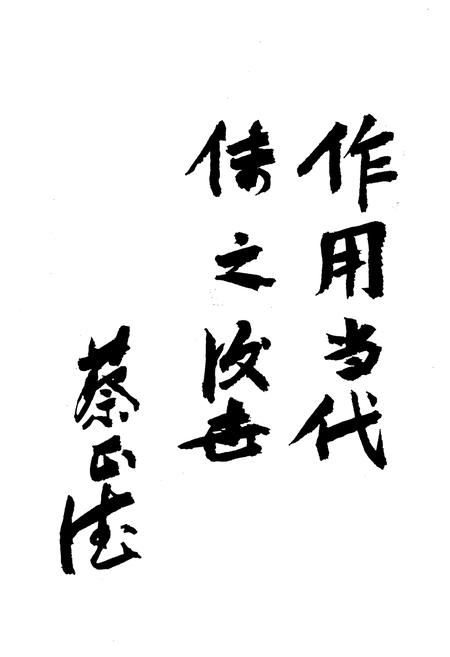 作用当代
传之后世
蔡正德